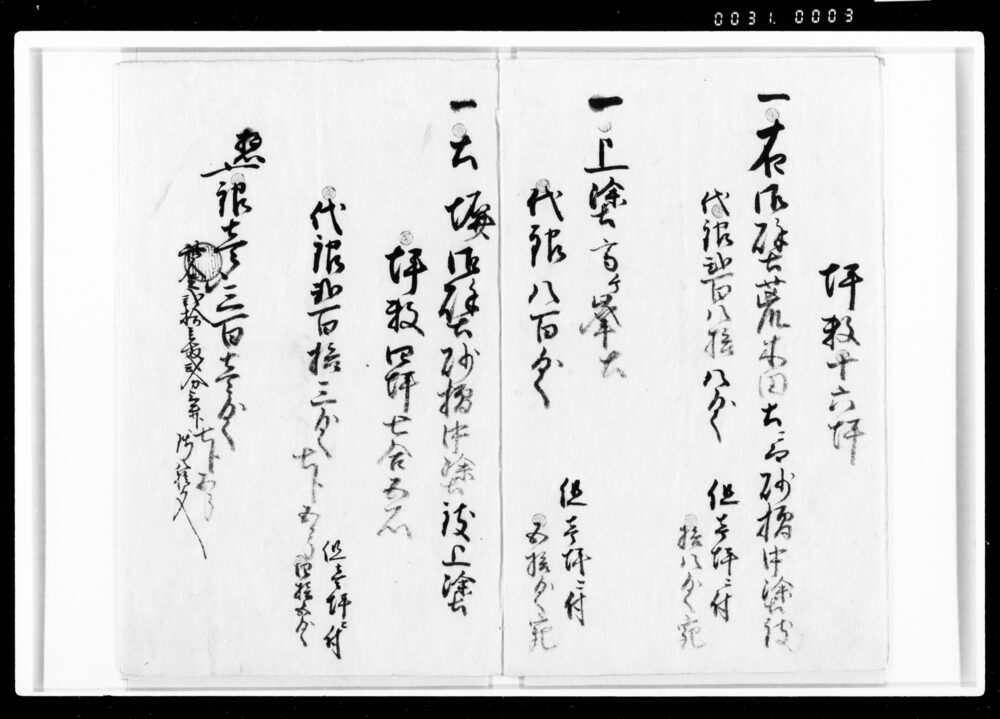 0031. 0003
坪数十六坪
一右御壁土荒木田土ニ而砂摺中塗後
代銀弐百八拾八匁
但壱坪ニ付
拾八匁宛
一上塗高ヶ峯土
代銀八百匁
但壱坪ニ付
五拾匁宛
一土塀御壁土砂摺中塗後上塗
坪数四坪七合五夕
代銀弐百拾三匁七分五り
但壱坪ニ付
四拾五匁
惣銀壱〆三百壱匁
七分五り